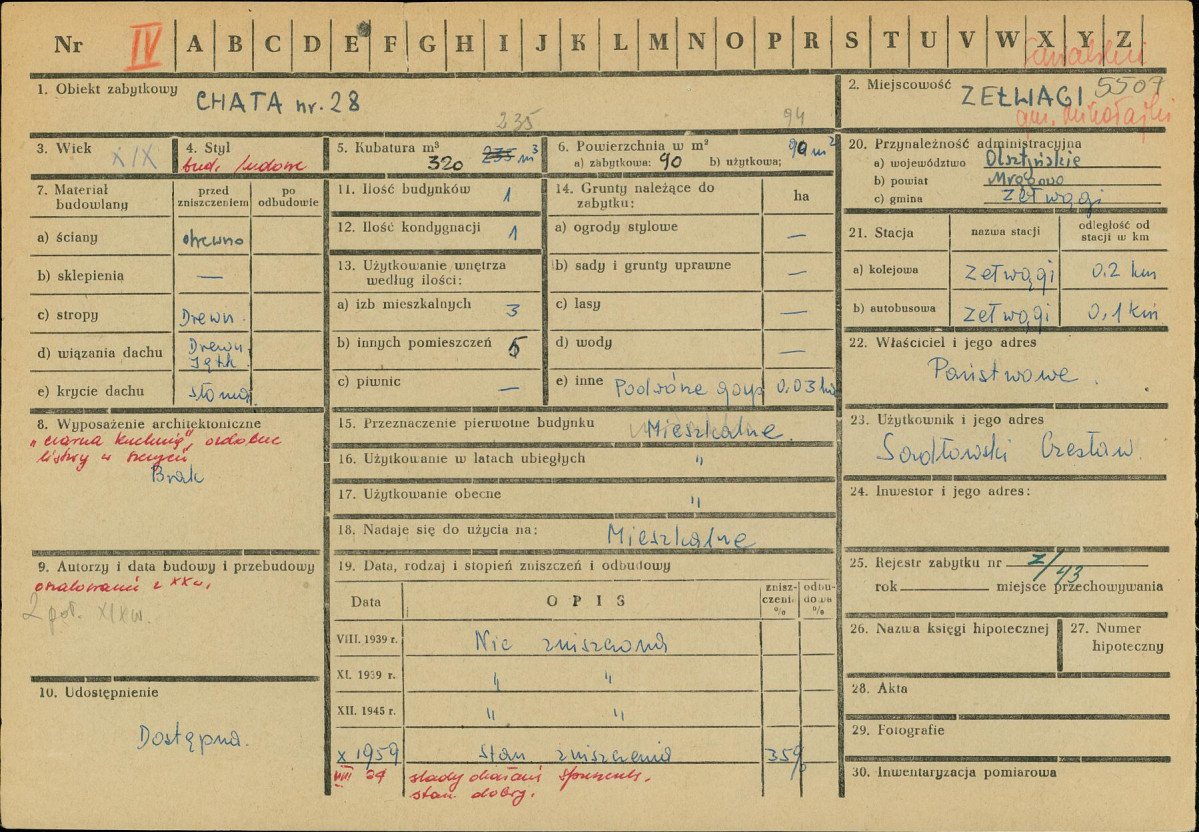 Nr IV A B C D E F G H I J K L M N O P R S T U V W X Y Z
Suwalski
1. Obiekt zabytkowy CHATA nr. 28
2. Miejscowość ZEŁWAGI 5507
gm. Mikołajki
3. Wiek XIX
4. Styl
bud. ludowe
235
5. Kubatura m³
320 235 m³
94
6. Powierzchnia w m²
a) zabytkowa: 90 b) użytkowa: 90 m²
7. Materiał budowlany
przed zniszczeniem
po odbudowie
a) ściany drewno
b) sklepienia —
c) stropy Drewn.
d) wiązania dachu Drewn. Jętk.
e) krycie dachu słoma
8. Wyposażenie architektoniczne
"czarna kuchnia", ozdobne
listwy w szczycie
Brak
9. Autorzy i data budowy i przebudowy
z XX w.
2 poł. XIX w.
10. Udostępnienie
Dostępna.
11. Ilość budynków 1
12. Ilość kondygnacji 1
13. Użytkowanie wnętrza
według ilości:
a) izb mieszkalnych 3
b) innych pomieszczeń 5
c) piwnic —
14. Grunty należące do
zabytku:
ha
a) ogrody stylowe —
b) sady i grunty uprawne —
c) lasy —
d) wody —
e) inne Podwórze gosp 0,03 ha
15. Przeznaczenie pierwotne budynku Mieszkalne.
16. Użytkowanie w latach ubiegłych "
17. Użytkowanie obecne "
18. Nadaje się do użycia na: Mieszkalne
19. Data, rodzaj i stopień zniszczeń i odbudowy
Data OPIS zniszczenie % odbudowa %
VIII. 1939 r. Nie zniszczona
XI. 1939 r. " "
XII. 1945 r. " "
X 1959 stan zniszczenia 35%
VIII
stan dobry.
20. Przynależność administracyjna
a) województwo Olsztyńskie
b) powiat Mrągowo
c) gmina Zełwągi
21. Stacja
nazwa stacji
odległość od
stacji w km
a) kolejowa Zełwągi 0.2 km
b) autobusowa Zełwągi 0,1 km
22. Właściciel i jego adres
Państwowe.
23. Użytkownik i jego adres
Sadłowski Czesław.
24. Inwestor i jego adres:
25. Rejestr zabytku nr Z/43
rok miejsce przechowywania
26. Nazwa księgi hipotecznej
27. Numer
hipoteczny
28. Akta
29. Fotografie
30. Inwentaryzacja pomiarowa